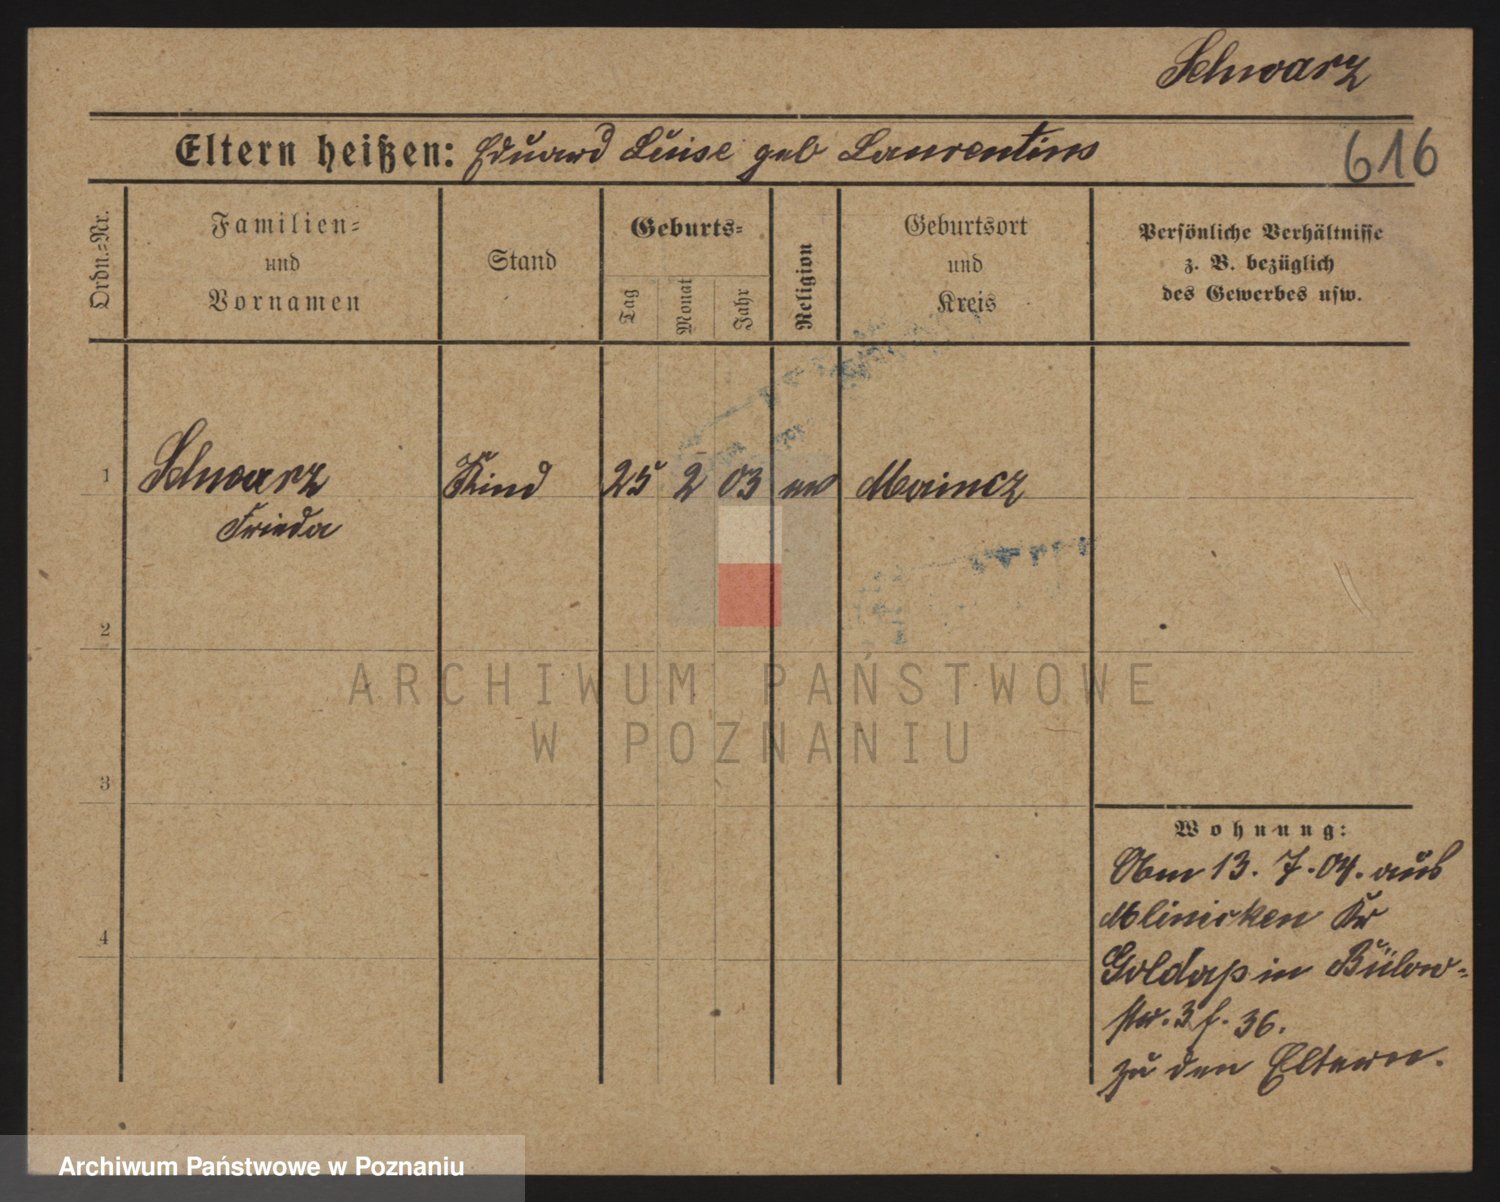 Schwarz
Eltern heißen: Eduard Luise geb Laurentius
616
Ordn.=Nr.
Familien=
und
Vornamen
Stand
Geburts=
Tag
Monat
Jahr
Religion
Geburtsort
und
Kreis
Persönliche Verhältnisse
z. B. bezüglich
des Gewerbes usw.
1
Schwarz
Frieda
Kind
25
2
03
ev
Maincz
2
ARCHIWUM PAŃSTWOWE
W POZNANIU
3
4
Wohnung:
Am 13. 7. 04. aus
Mlinicken Kr
Goldap in Bülow=
str. 3 f. 36.
zu den Eltern.
Archiwum Państwowe w Poznaniu